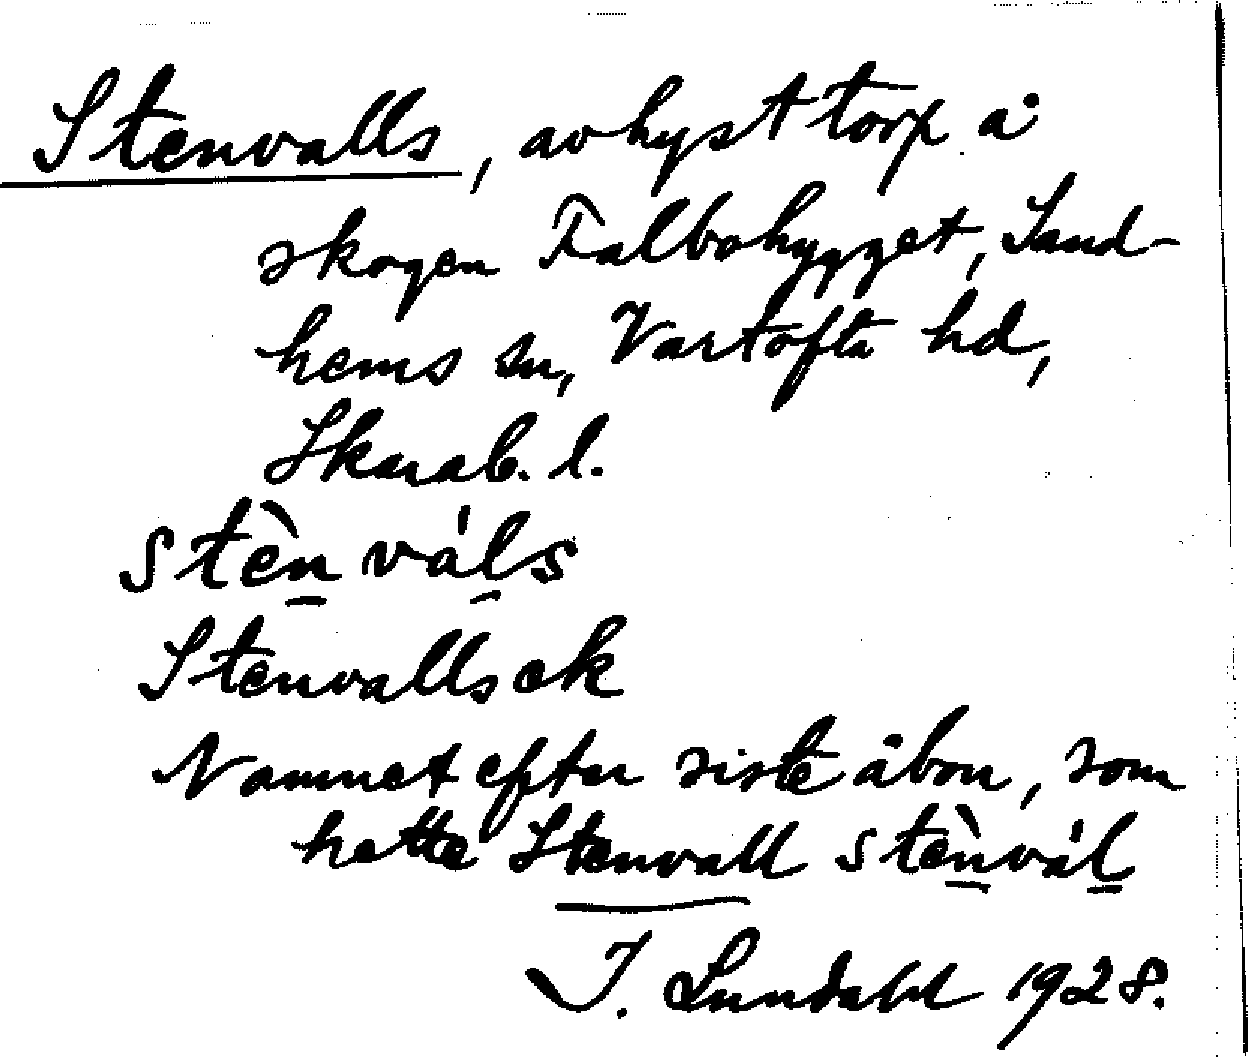 Stenvalls, avhyst torp å
skogen Falbohygget, Sand-
hems sn, Vartofta hd,
Skarab. l.
stèn̲ vál̲s
Stenvalls ek
Namnet efter siste åbon, som
hette Stenvall stèn̲vál̲
I. Lundahl 1928.